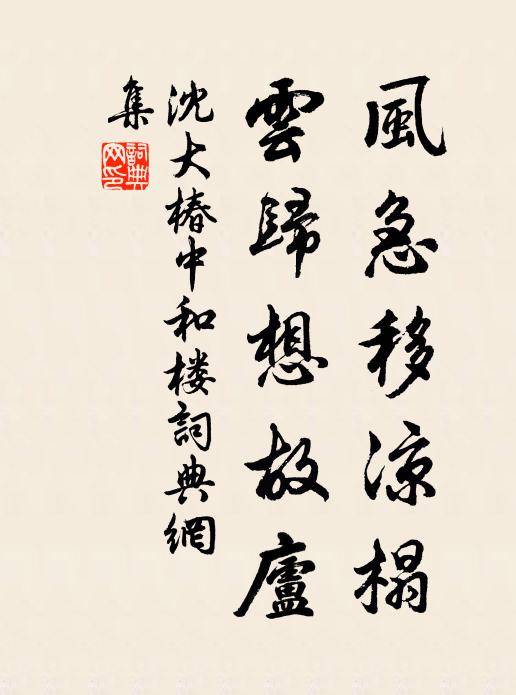 風急移涼榻
雲歸想故廬
沈大椿中和楼詞典網
集
詞典網印